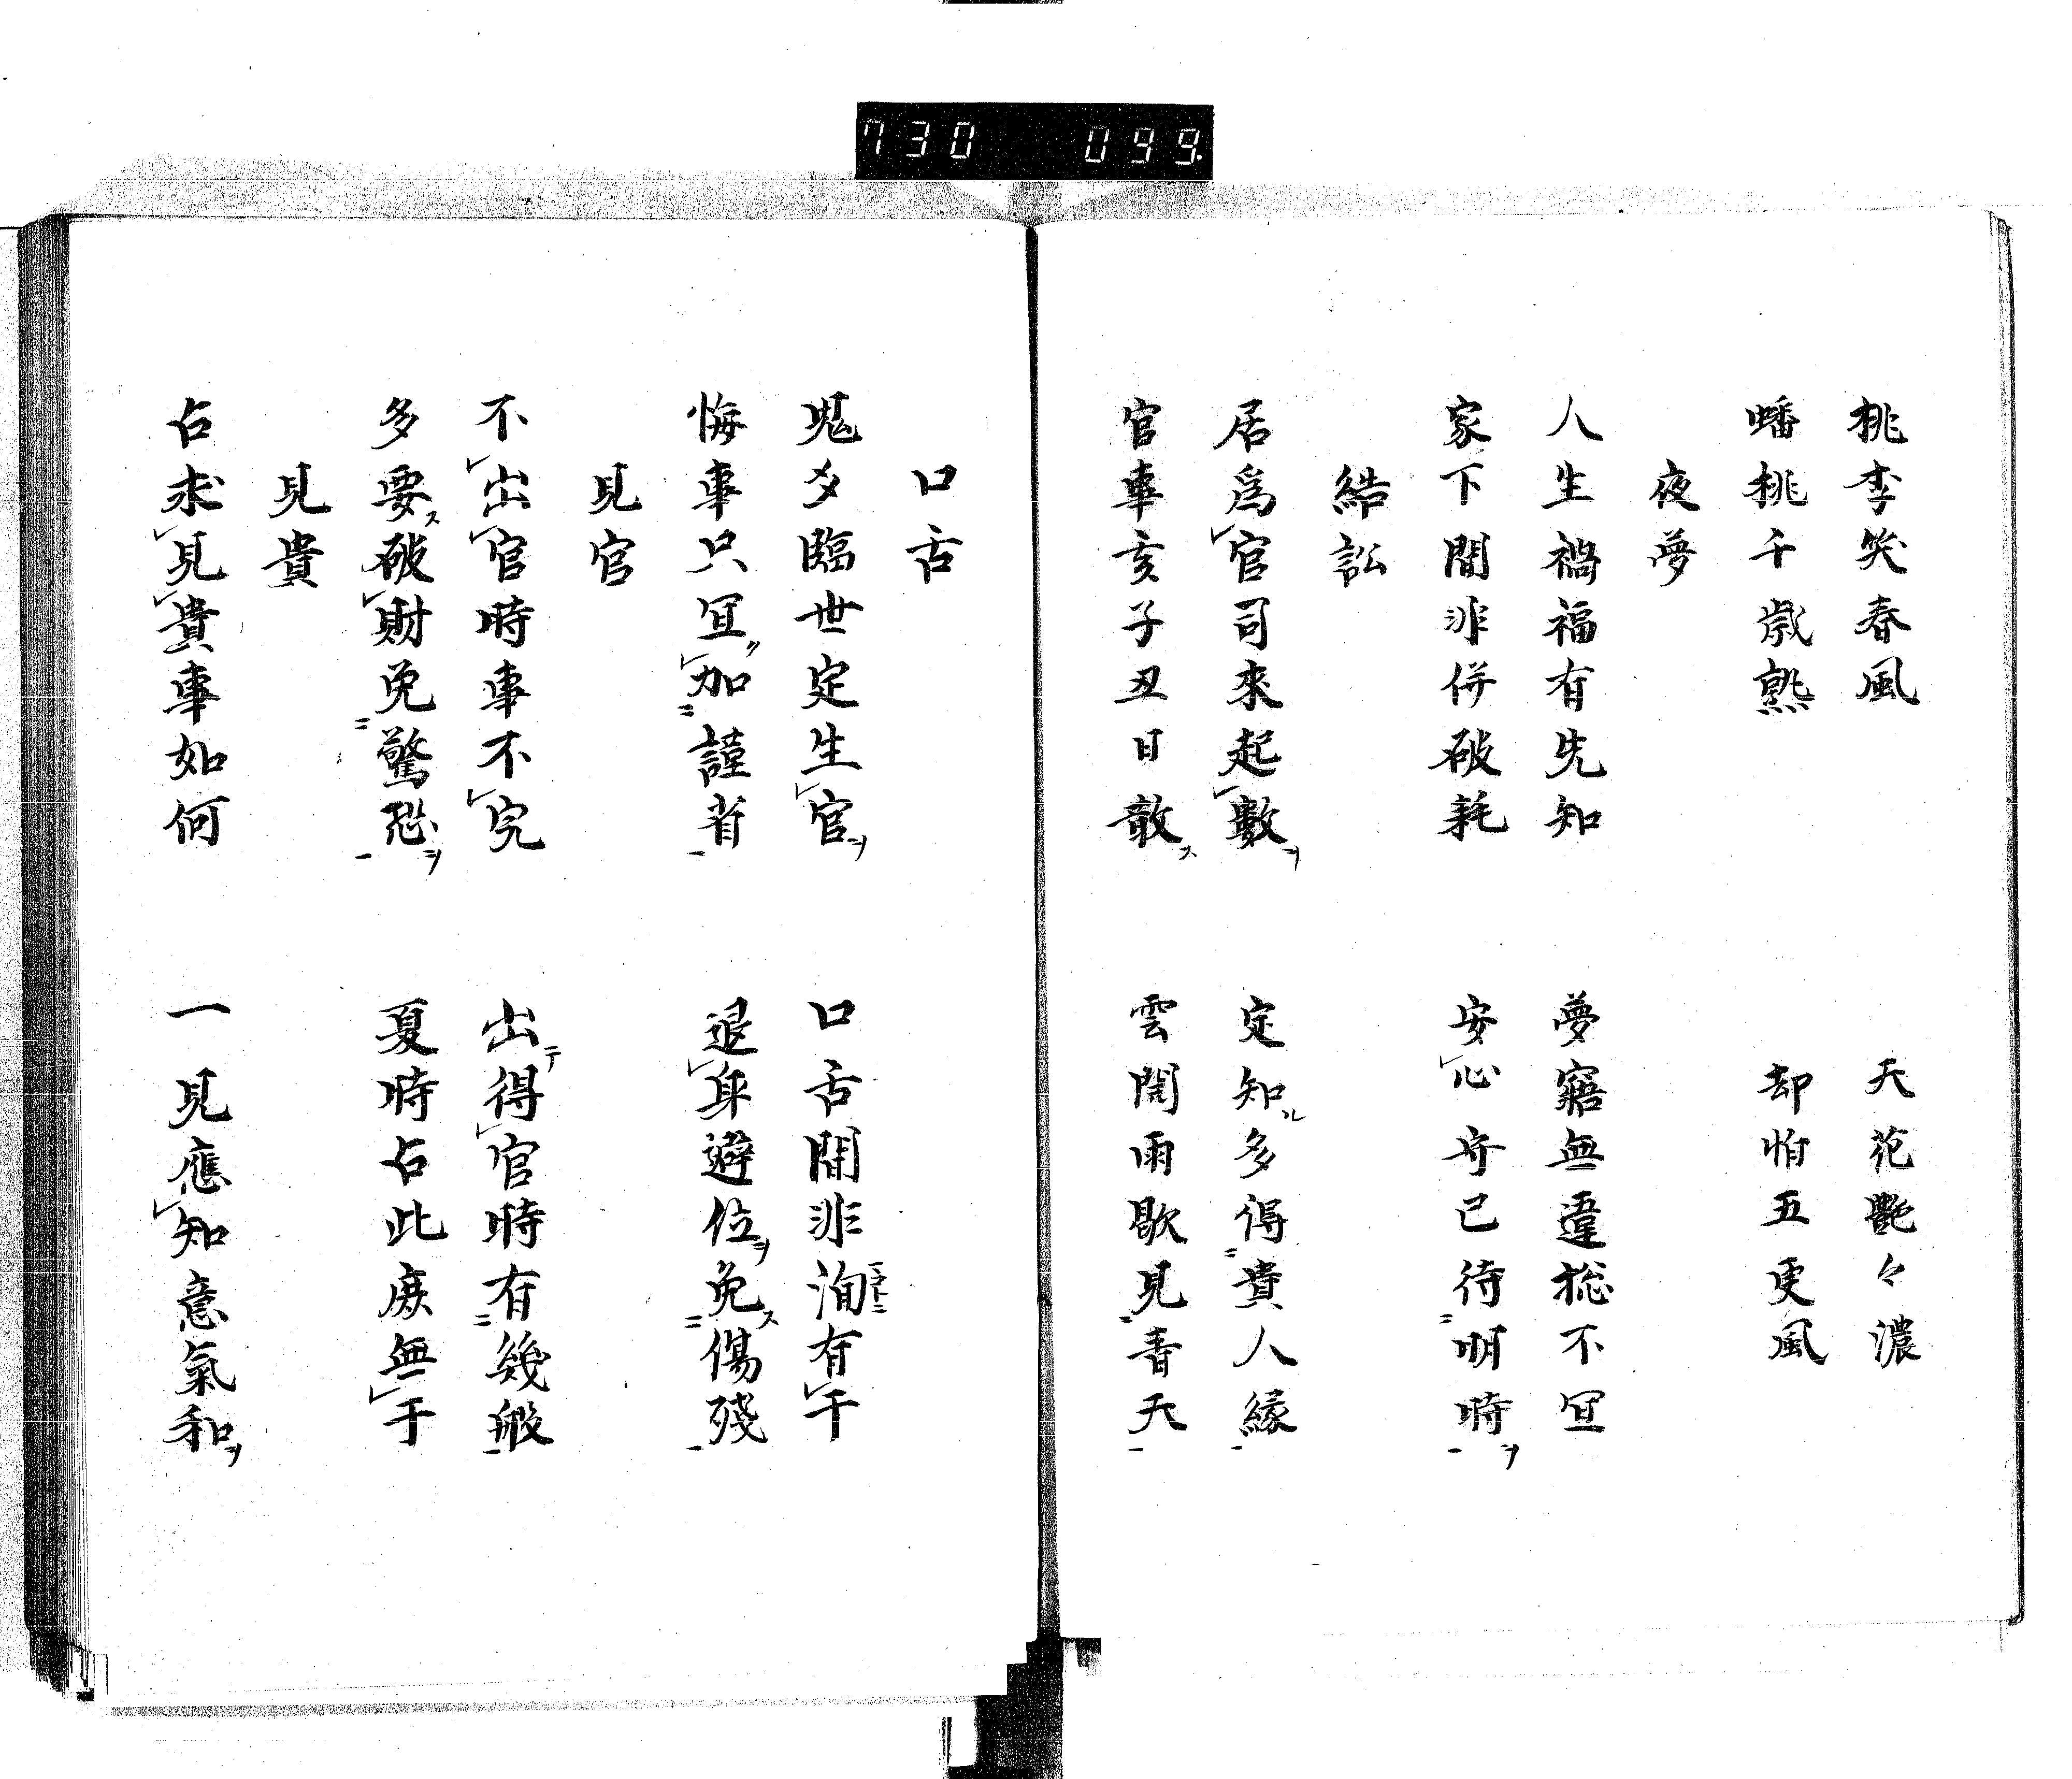 730 099
桃李笑春風 天花艶々濃
蟠桃千歳熟 却怕五更風
夜夢
人生禍福有先知 夢寤無違総不冝
家下閒非併破耗 安心守己待明時ヲ
結訟
居爲官司來起數ヲ 定知ル多得貴人縁
官事亥子丑日散ス 雲開雨歇見青天
口舌
鬼多臨世定生官ヲ 口舌閒非洵有干
悔事只冝ク加謹省 退身避位ヲ免ス傷殘
見官
不出官時事不完 出テ得官時有幾般
多要ス破財免驚恐ヲ 夏時占此庻無于
見貴
占求見貴事如何 一見應知意氣和ヲ